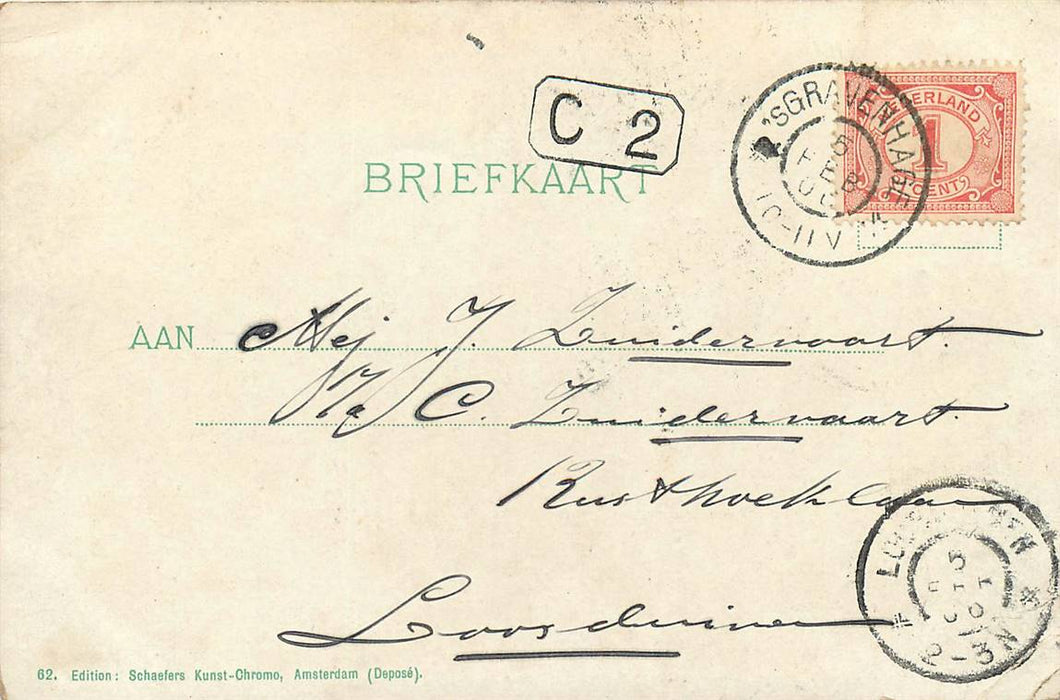 C 2
'SGRAVENHAGE
5
FEB
10-11V
NEDERLAND
1
CENT
BRIEFKAART
AAN Mej J. Zuidervaart.
p/a C. Zuidervaart.
Rusthoeklaan
Loosduinen
LOOSDUINEN
5
2-3N
62. Edition: Schaefers Kunst-Chromo, Amsterdam (Deposé).